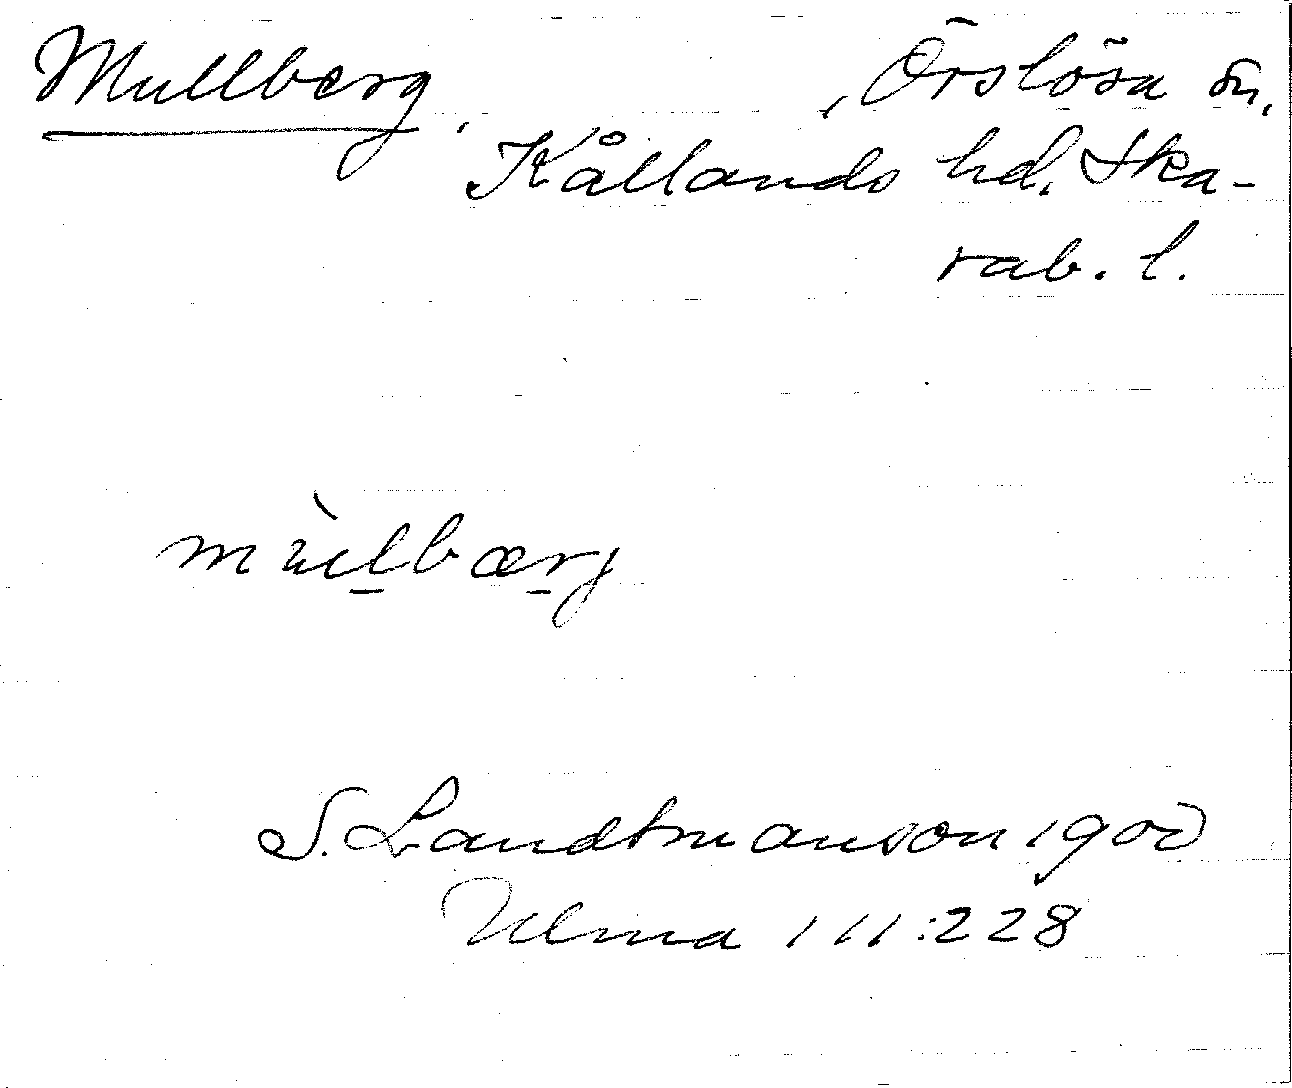 Mullberg, Örslösa sn,
Kållands hd. Ska-
rab. l.
mùlbærj
S. Landtmanson 1900
Ulma 111:228